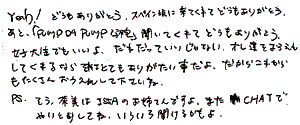 Yeah! どうもありがとう。スペイン坂に来てくれてどうもありがとう。
あと、「PUMP DA PUMP公院」聞いてくれてどうもありがとう
女子大生でもいいよ。だれだっていいじゃない。オレ達をおうえん
してくれるなら とてもありがたい事だよ。だからこれから
もたくさんおうえんして下さいね。
PS. てう、奈美はYOURのお姉さんですよ。また CHATで
やいとりしてね、いろいろ聞けるかもよ。